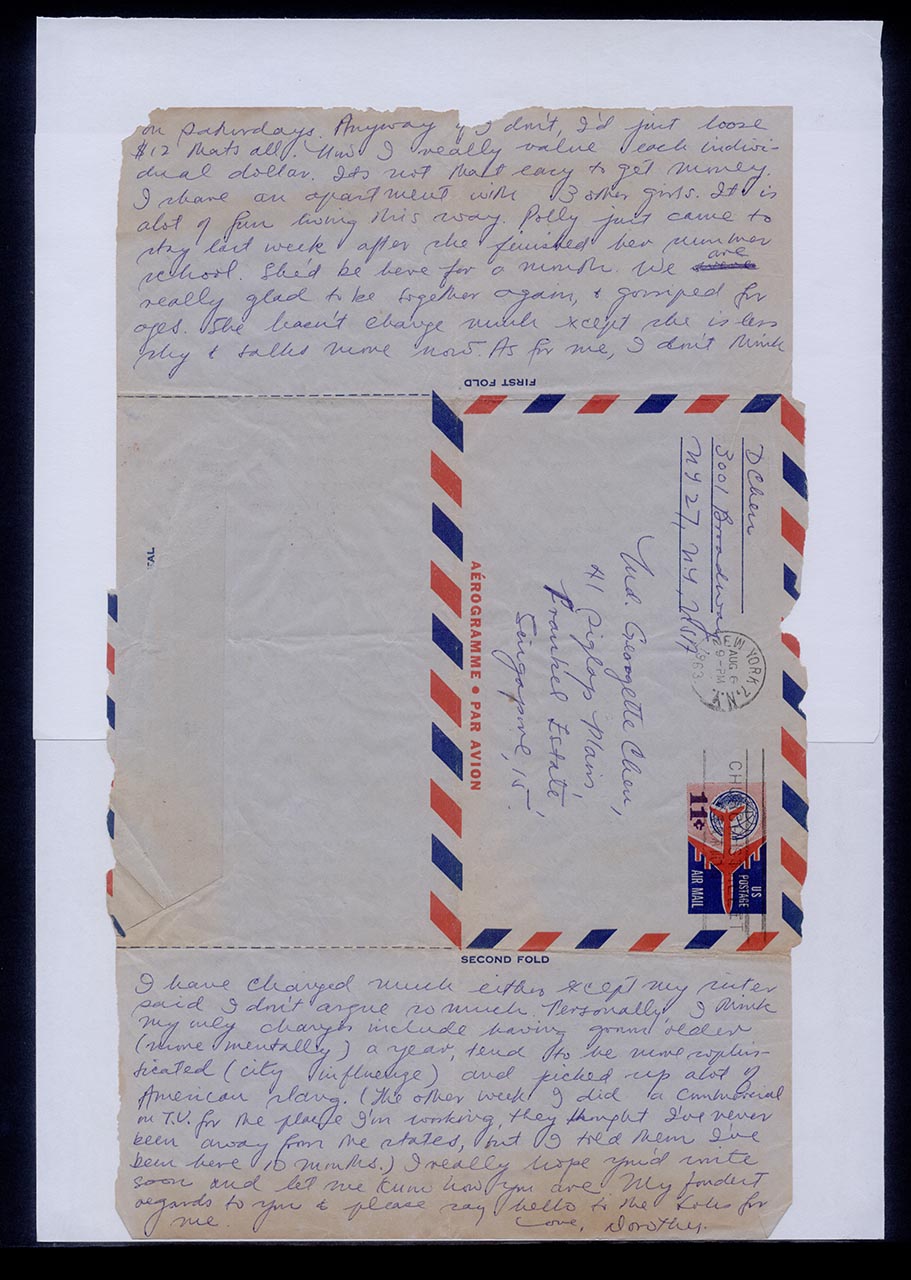 on Saturdays. Anyway if I don't, I'd just loose
$12 thats all. Now I really value each indivi-
dual dollar. Its not that easy to get money.
I share an apartment with 3 other girls. It is
alot of fun living this way. Polly just came to
stay last week after she finished her summer
school. She'd be here for a month. We are
really glad to be together again, & gossiped for
ages. She hasn't change much xcept she is less
shy & talks more now. As for me, I don't think
FIRST FOLD
D Chen
3001 Broadway
NY 27, NY, USA
NEW YORK, N.Y.
AUG 6
9-PM
1963
11¢
US POSTAGE
AIR MAIL
Md. Georgette Chen,
41 Siglap Plain,
Frankel Estate,
Singapore, 15.
AÉROGRAMME • PAR AVION
SECOND FOLD
I have changed much either xcept my sister
said I don't argue so much. Personally I think
my only changes include having grown older
(more mentally) a year, tend to be more sophis-
ticated (city influence) and picked up alot of
American slang. (The other week I did a commercial
on T.V. for the place I'm working, they thought I've never
been away from the states, but I told them I've
been here 10 months.) I really hope you'd write
soon and let me know how you are. My fondest
regards to you & please say hello to the for
me. Love, Dorothy.